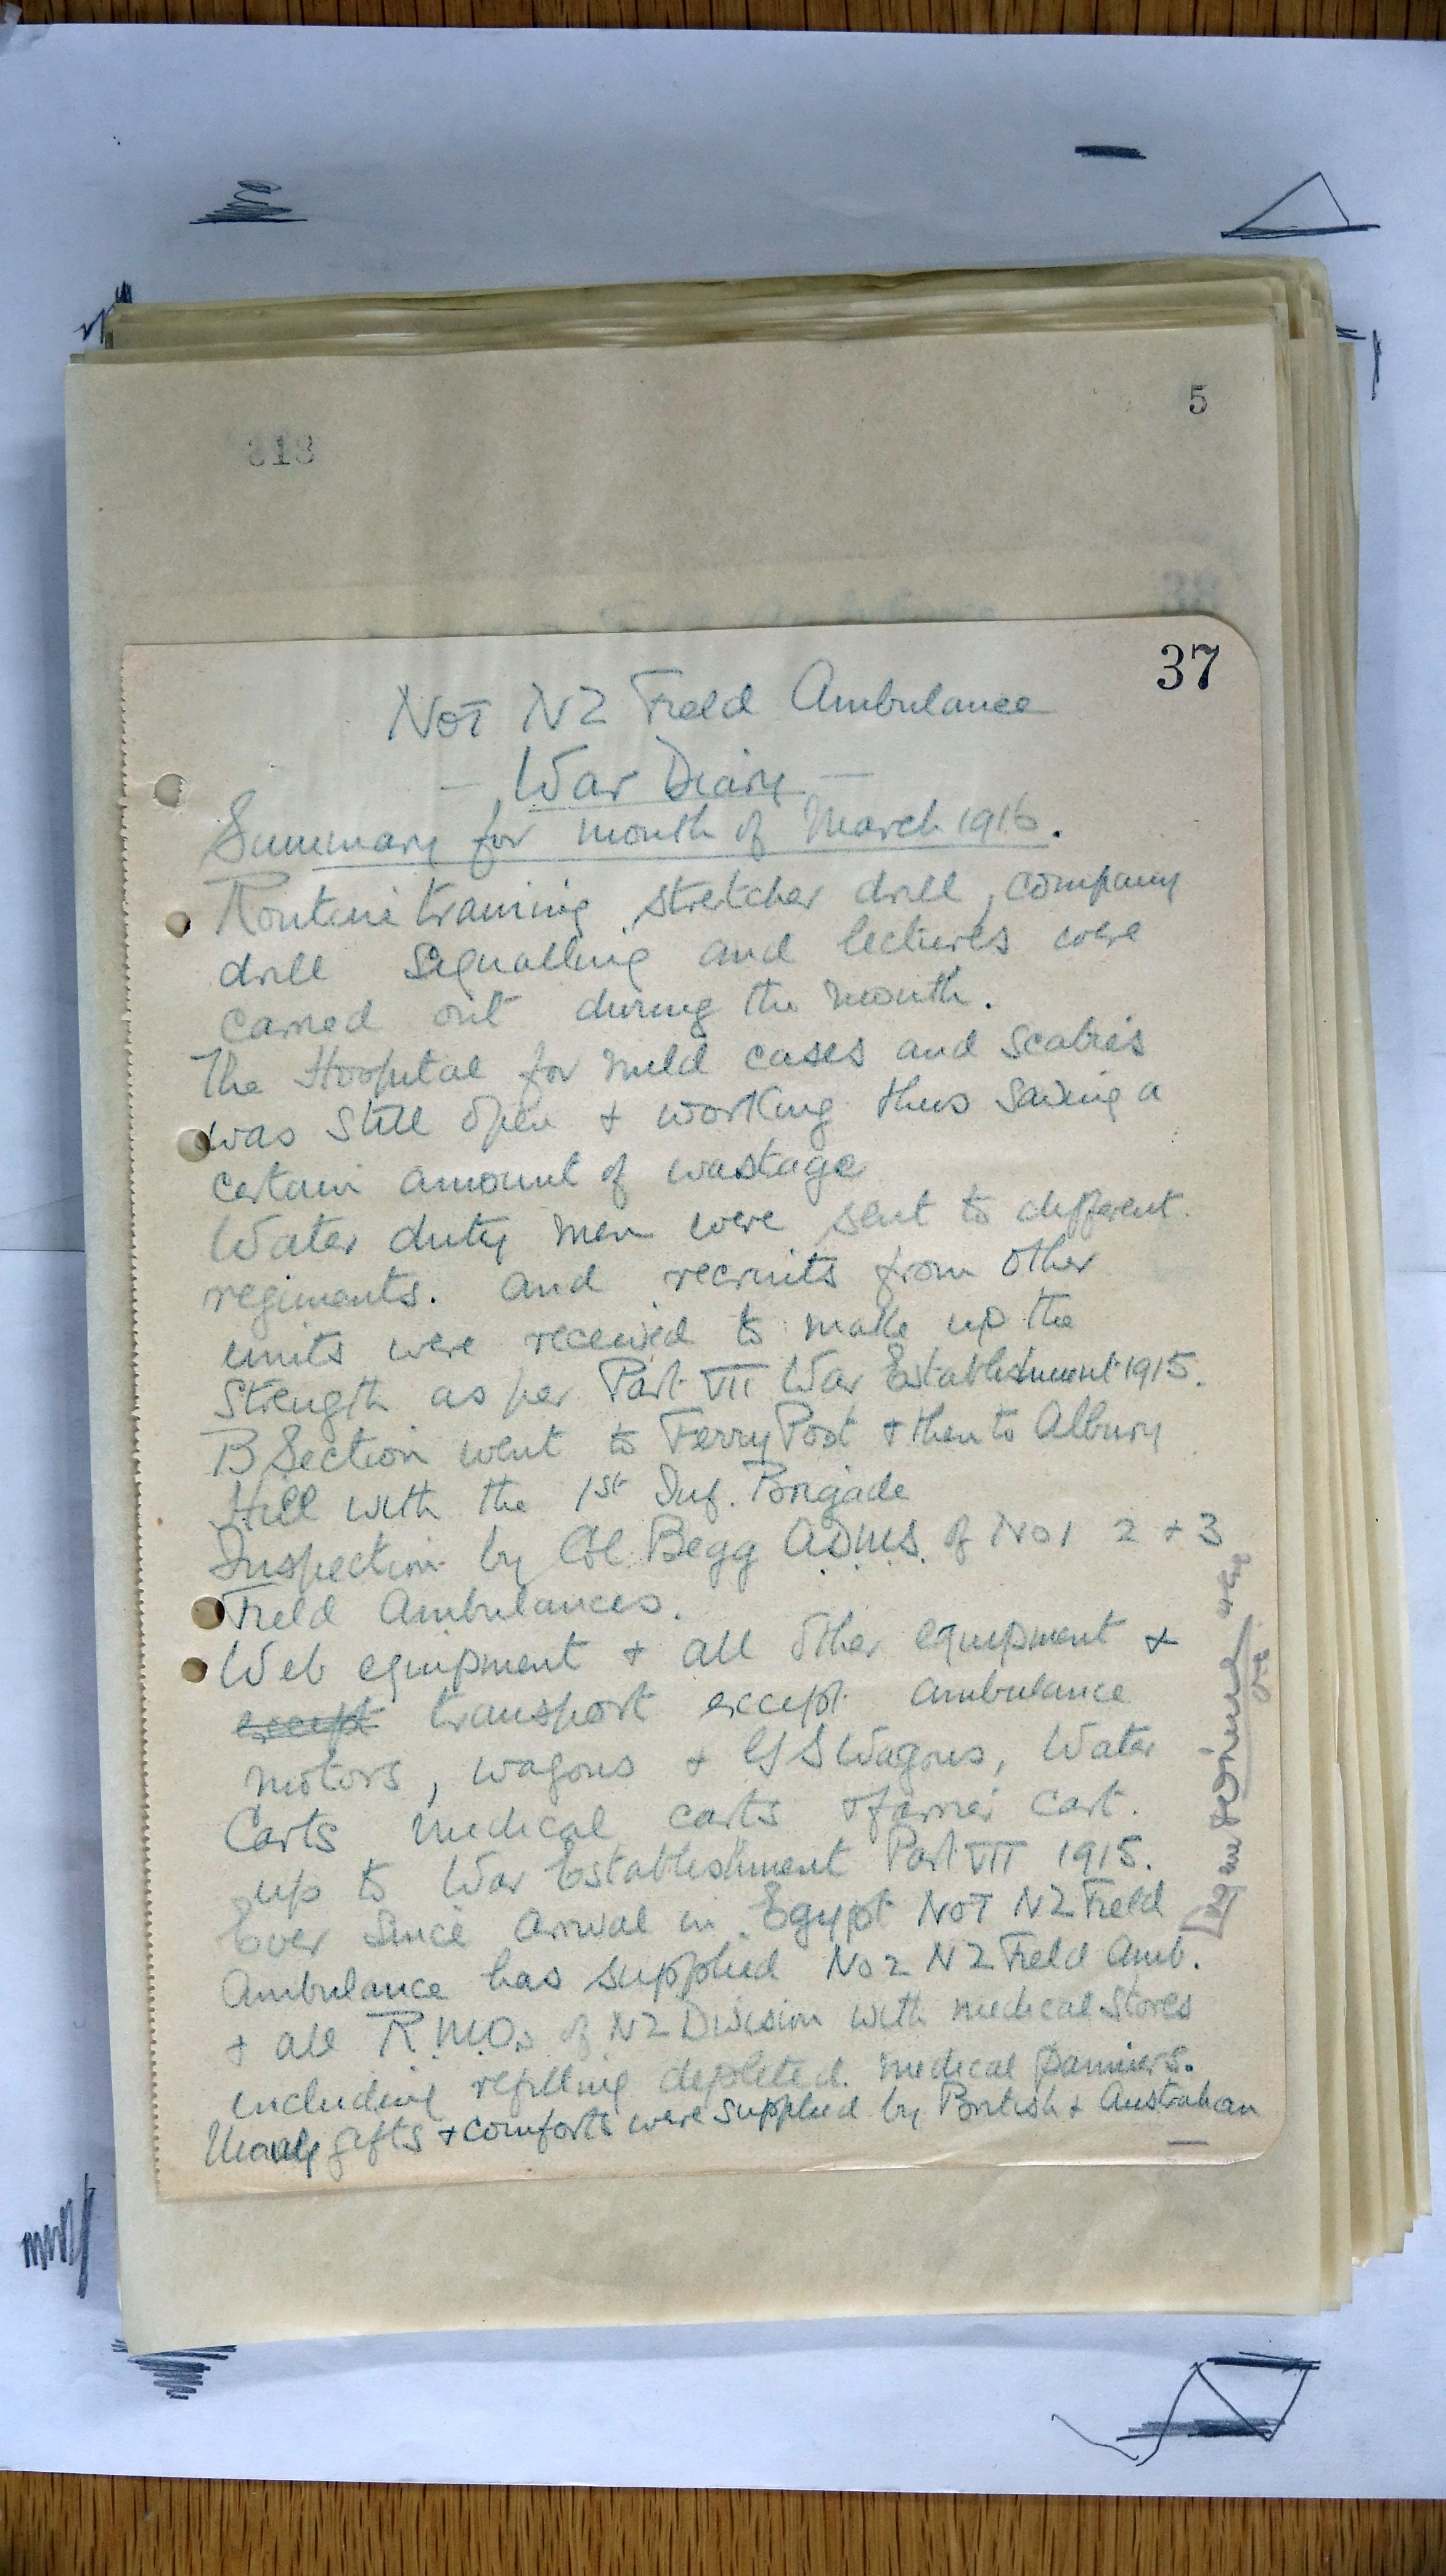 5
313
37
NOI NZ Field Ambulance
— War Diary —
Summary for month of March 1916.
Routine training, stretcher drill, company
drill signalling and lectures were
carried out during the month.
The Hospital for mild cases and scabies
was still open + working thus saving a
certain amount of wastage
Water duty men were sent to different.
regiments. and recruits from other
units were received to make up the
strength as per Part VII War Establishment 1915.
B Section went to Ferry Post + then to Albury
Hill with the 1st Inf. Brigade
Inspection by Col. Begg A.D.M.S. of No 1 2 + 3
Field Ambulances.
Web equipment + all other equipment +
except transport except ambulance
motors, wagons + GS Wagons, Water
Carts medical carts + farrier cart.
up to War Establishment Part VII 1915.
Ever since arrival in Egypt NOI NZ Field
Ambulance has supplied No 2 NZ Field Amb.
+ all R.M.Os of NZ Division with medical stores
including refilling depleted medical panniers.
Many gifts + comforts were supplied by British + Australian